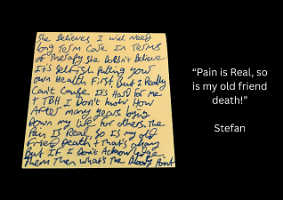 She Believes I will Need
long Term Care In Terms
of Therapy She Doesn't Believe
It's Selfish Putting your
own Health First But I Really
Can't Cause It's Hard for me
& TBH I Don't know How
After many years
Down my life for others. The
Pain Is Real, So is my old
Friend Death & That's okay
But If I Don't Acknowledge
Them Then What's the Bloody Point
“Pain is Real, so
is my old friend
death!”
Stefan